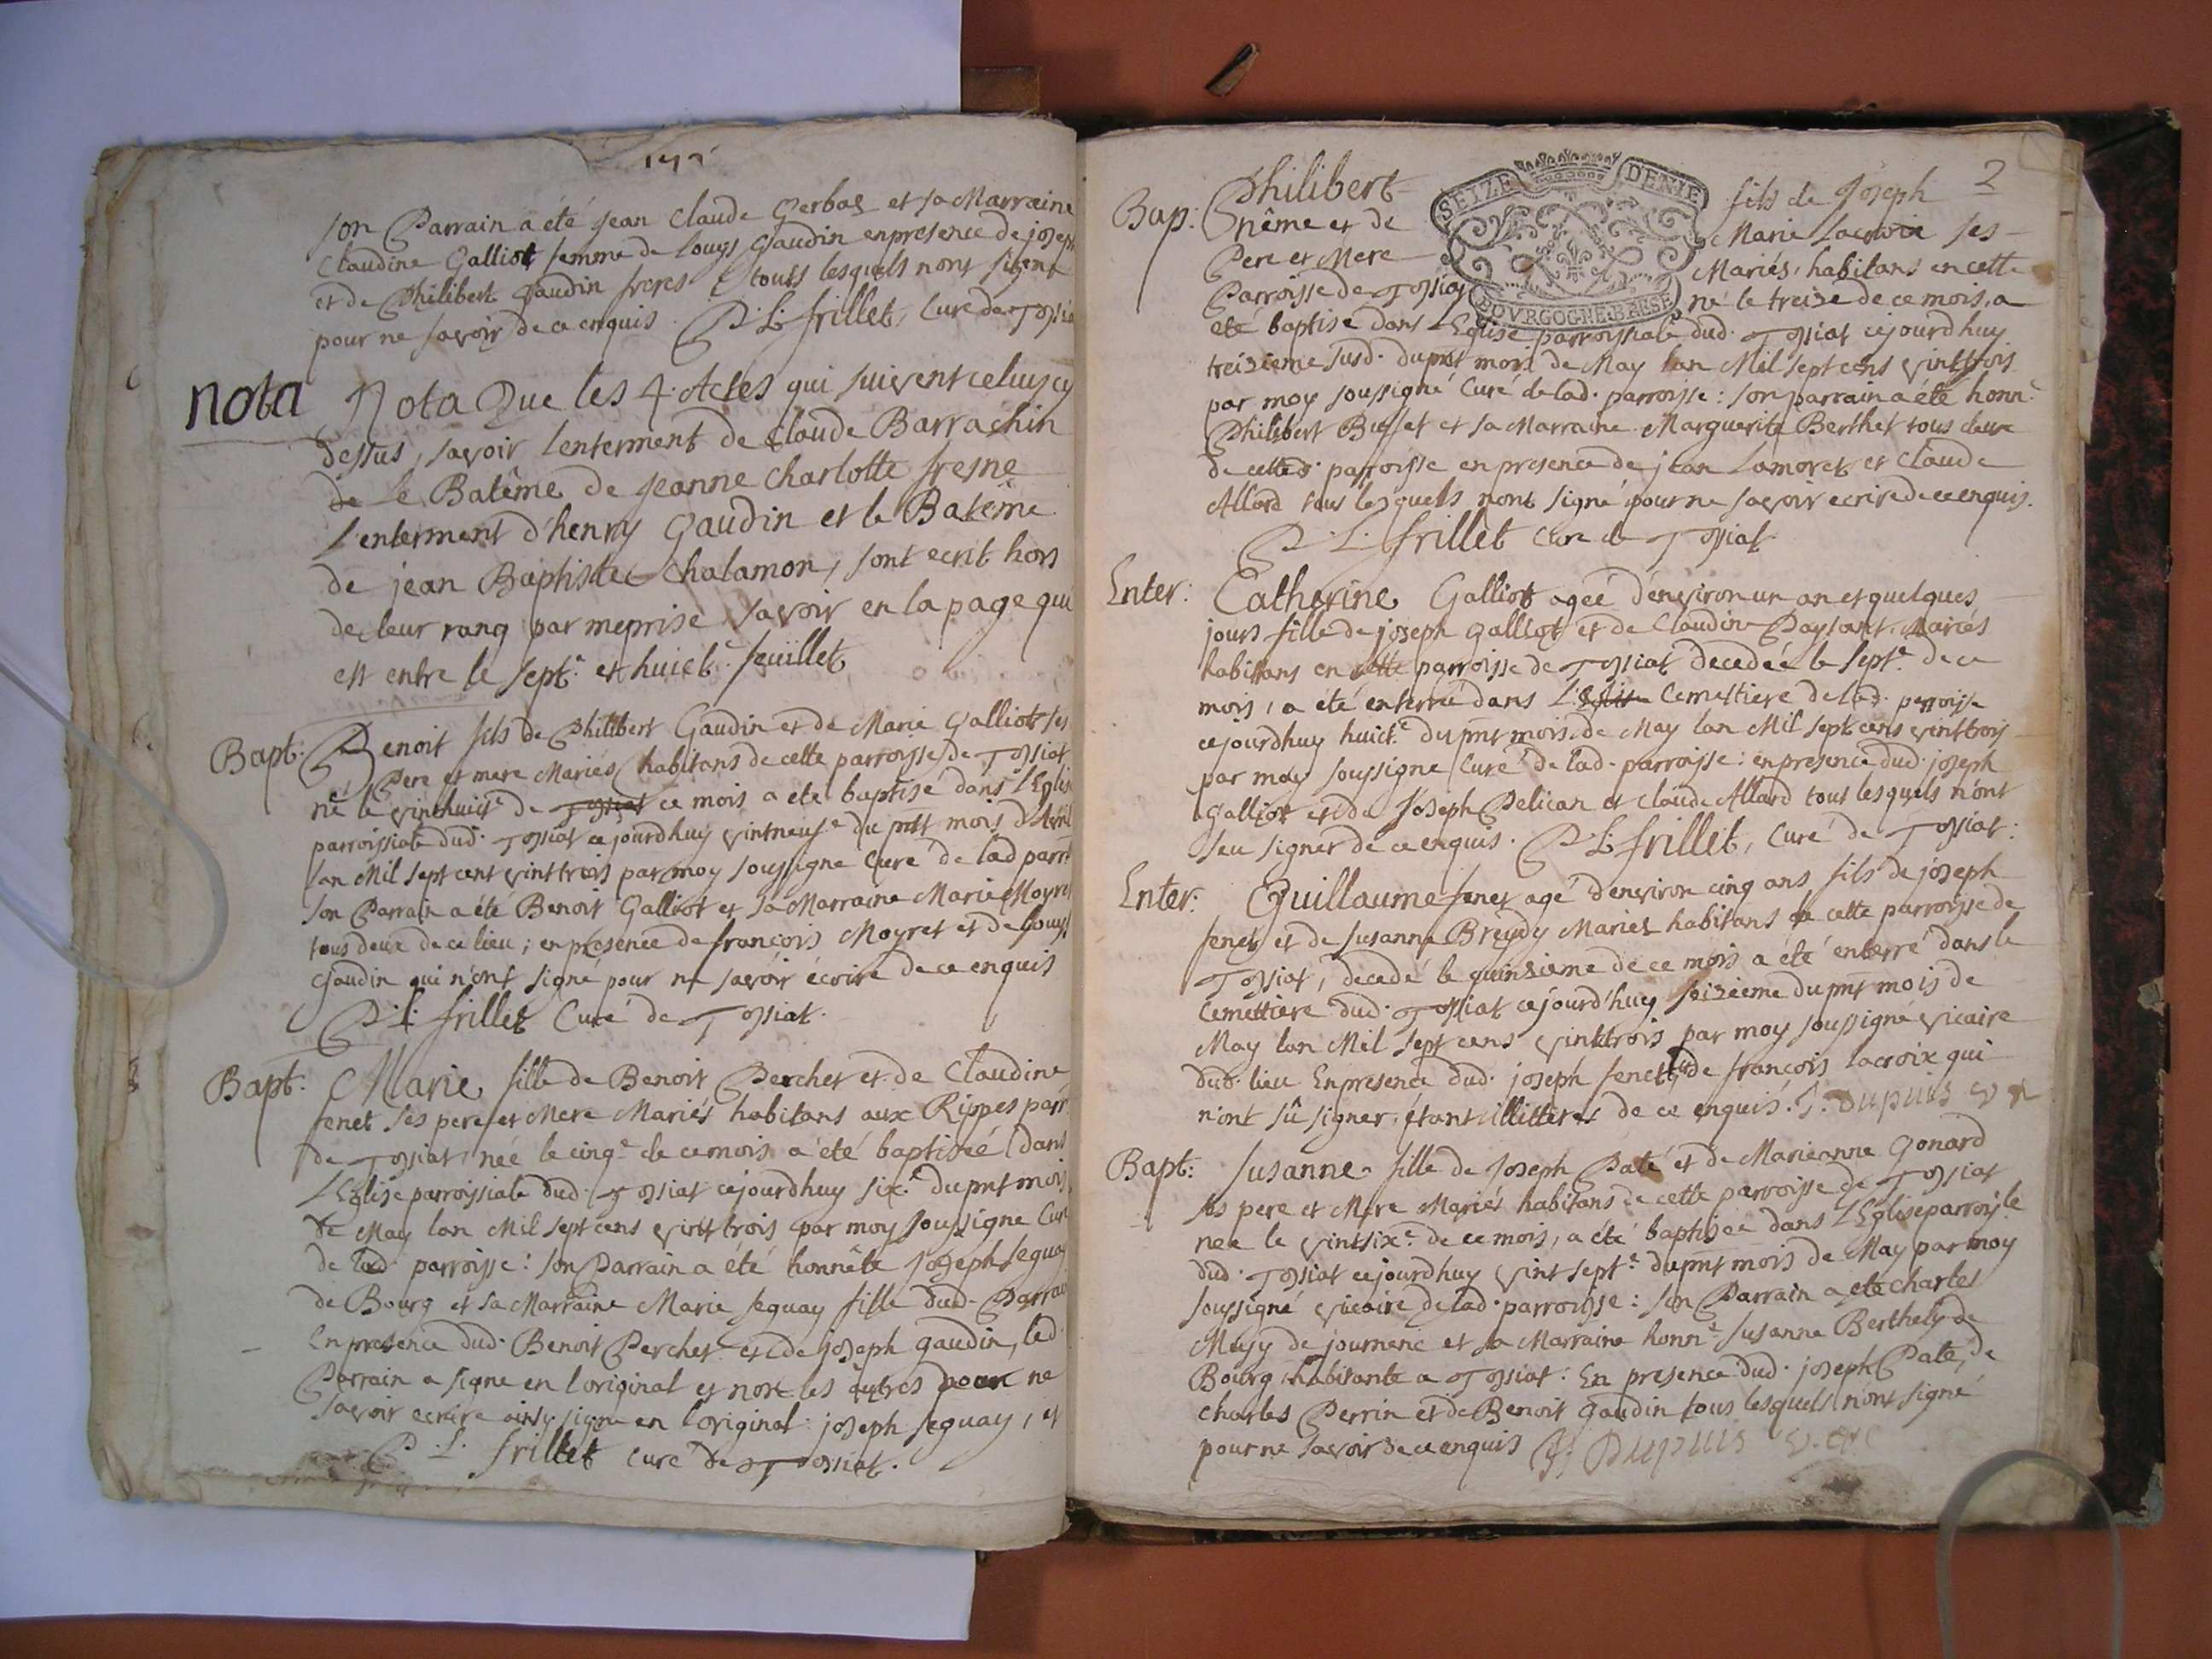 son Parrain a été jean claude Gerbas et sa Marraine
Claudine Galliot femme de louys Gaudin en presence de joseph
et de Philibert Gaudin freres tous lesquels n'ont signé
pour ne savoir de ce enquis. P. L. frillet, Curé de Tossia
nota
Nota Que les 4. Actes qui suivent celuy cy
dessus, savoir lenterment de Claude Barrachin
de le Batême de Jeanne Charlotte fresne
l'enterment d'henry Gaudin et le Batême
de jean Baptiste Chalamon, sont ecrit hors
de leur rang par meprise savoir en la page qui
est entre le sept.e et huict.e feüillet
Bapt: Benoit fils de Philibert Gaudin et de Marie Galliot ses
Pere et mere Mariés habitans de cette parroisse de Tossiat
né le vinthuict.e de Tossiat ce mois a été baptisé dans l'Eglise
parroissiale dud. Tossiat cejourdhuy vintneuf.e du pnt mois d'Avril
lan Mil sept cent vint trois par moy soussigné Curé de lad parr
son Parrain a été Benoit Galliot et sa Marraine Marie Moyret
tous deux de ce lieu; en presence de françois Moyret et de louys
Gaudin qui n'ont signé pour ne savoir écrire de ce enquis
P. L. frillet Curé de Tossiat.
Bapt: Marie fille de Benoit Perchet et de Claudine
fenet ses pere et Mere Mariés habitans aux Rippes parr.
de Tossiat, née le cinq.e de ce mois a été baptisée dans
l'Eglise parroissiale dud. Tossiat cejourdhuy six.e du pnt mois
de May lan Mil sept cens vint trois par moy soussigné Curé
de lad. parroisse: son Parrain a été honnête joseph seguay
de Bourg et sa Marraine Marie seguay fille dud. Parrain
En presence dud. Benoit Perchet et de joseph gaudin, led.
Parrain a signé en l'original et non les autres pour ne
savoir ecrire ainsy signé en l'original: joseph seguay, et
P. L. frillet curé de Tossiat.
2
SEIZE DENIE
BOVRGOGNE. BRESSE
Bap: Philibert fils de Joseph
Pnême et de Marie Lacroix ses
Pere et Mere Mariés, habitans en cette
Parroisse de Tossiat né le treize de ce mois, a
été baptisé dans l'Eglise parroissiale dud. Tossiat cejourdhuy
treizieme susd. du pnt mois de May lan Mil sept cens vint trois
par moy soussigné Curé de lad. parroisse: son parrain a été honn.e
Philibert Buffet et sa Marraine Marguerite Berthet tous deux
de cette d. parroisse en presence de jean Lamoret et Claude
Allard tous lesquels n'ont signé pour ne savoir ecrire de ce enquis.
P. L. frillet Cure de Tossiat.
Enter: Catherine Galliot agée d'environ un an et quelques
jours fille de joseph Galliot et de Claudine Paysant Mariés
habitans en cette parroisse de Tossiat decedée le sept.e de ce
mois, a été enterré dans l'Eglise Cemettiere de lad. parroisse
cejourdhuy huict.e du pnt mois de May lan Mil sept cens vint trois
par moy soussigne Curé de lad. parroisse: en presence dud. joseph
Galliot et de Joseph Pelican et Claude Allard tous lesquels n'ont
seu signer de ce enquis. P. L. frillet, Curé de Tossiat:
Enter: Guillaume fenet agé d'environ cinq ans fils de joseph
fenet et de Susanne Breydy Mariez habitans de cette parroisse de
Tossiat, decedé le quinzieme de ce mois a été enterré dans le
Cemettiere dud. Tossiat cejourd'huy seizieme du pnt mois de
May lan Mil sept cens vinttrois par moy soussigné vicaire
dud. lieu En presence dud. joseph fenet et de françois lacroix qui
n'ont sû signer étant illitterés de ce enquis. J. Dupuis
Bapt: Susanne fille de Joseph Paté et de Marieanne Gonard
ses pere et Mere Mariés habitans de cette parroisse de Tossiat
née le vintsix.e de ce mois, a été baptisée dans l'Eglise parroisle
dud. Tossiat cejourdhuy vint sept.e du pnt mois de May par moy
soussigné vicaire de lad. parroisse: son Parrain a été charles
Mugy de journenc et sa Marraine honn.e Susanne Berthely de
Bourg habitante a Tossiat: En presence dud. joseph Paté, de
charles Perrin et de Benoit Gaudin tous lesquels n'ont signé
pour ne savoir de ce enquis J. Dupuis